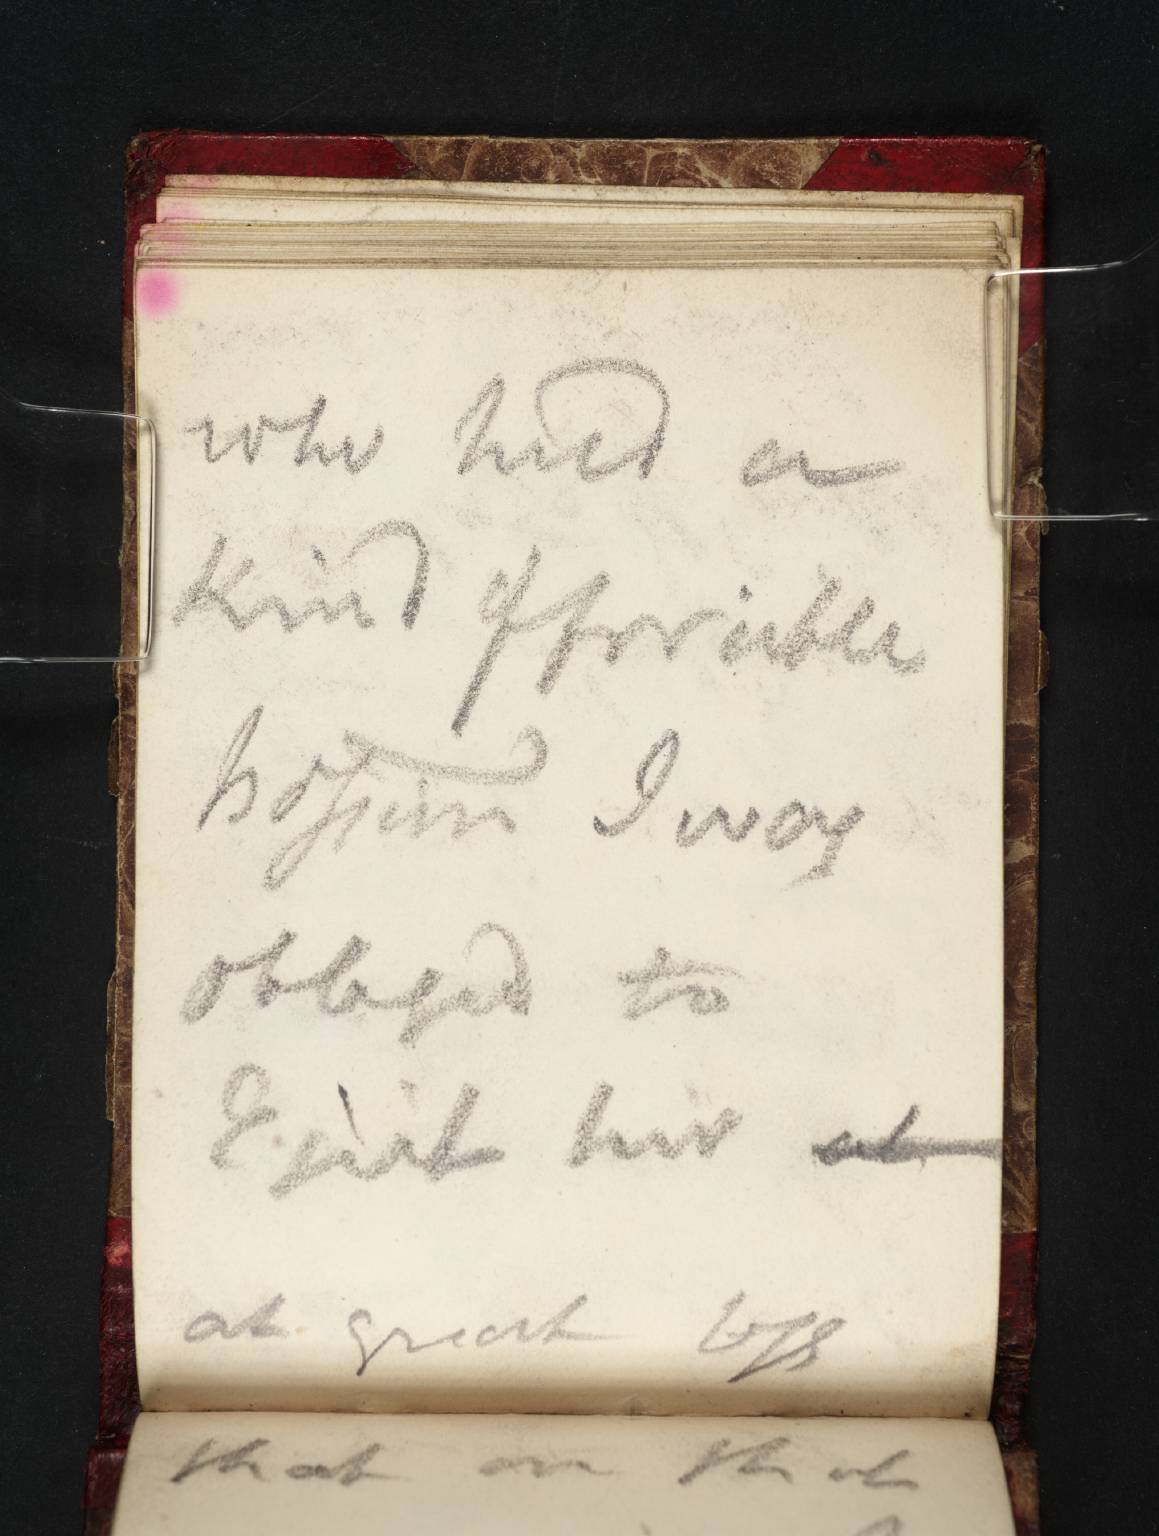 who had a
kind of horrible
hopping I was
obliged to
 him at
at great loss
that on that